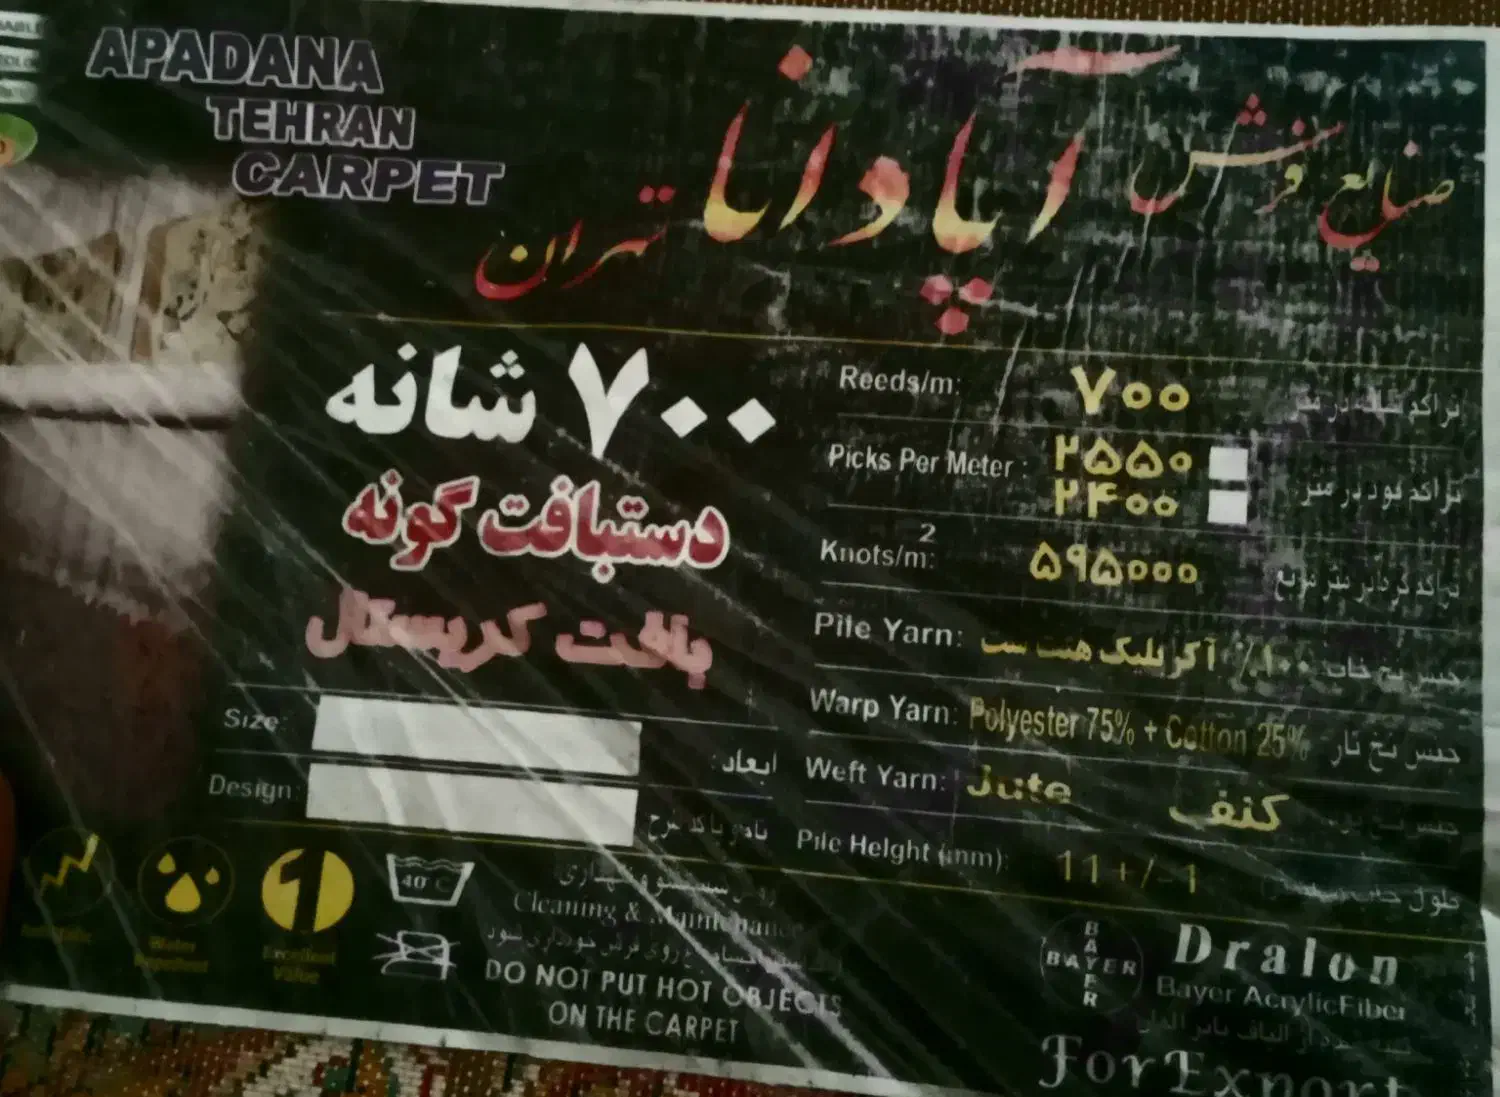 APADANA
TEHRAN
CARPET
صنایع فرش آپادانا تهران
۷۰۰ شانه
دستبافت گونه
بافت کریستال
Reeds/m: ۷۰۰ تراکم شانه در متر
Picks Per Meter : ۲۵۵۰ تراکم پود در متر
۲۴۰۰
Knots/m2: ۵۹۵۰۰۰ تراکم گره در متر مربع
Pile Yarn: ۱۰۰٪ آکریلیک هیت ست جنس نخ خاب
Warp Yarn: Polyester 75% + Cotton 25% جنس نخ تار
Weft Yarn: Jute کنف جنس نخ پود
Pile Height (mm): 11 +/- 1 طول خاب
Size: ابعاد:
Design: نام و یا کد طرح
40°C
Cleaning & Maintenance
DO NOT PUT HOT OBJECTS
ON THE CARPET
Water Repellent
Excellent Value
BAYER
BAYER
Dralon
Bayer AcrylicFiber
For Export